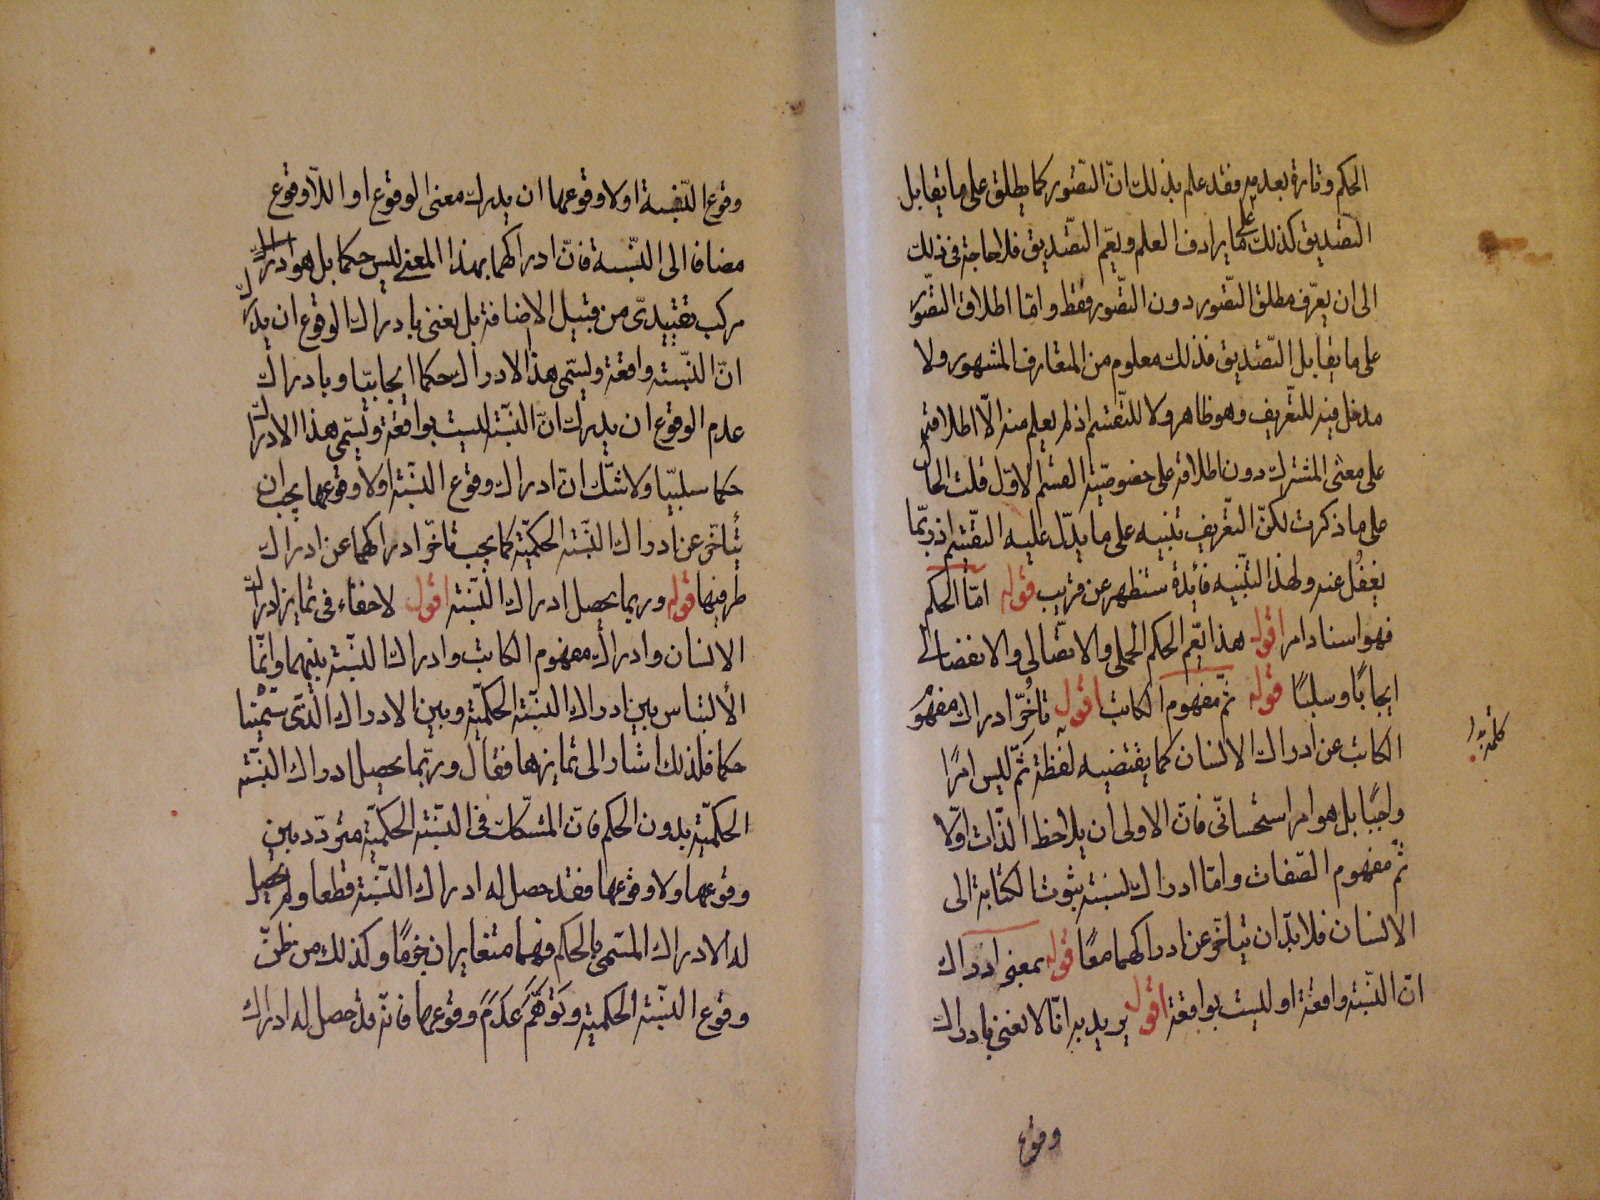 الحكم وتارة بعدمه فقد علم بذلك انّ التصّور كما يطلق على ما يقابل
التصديق كذلك على ما يرادف العلم ويعّم التصّديق فلا حاجة في ذلك
الى ان يعرّف مطلق التصّور دون التصّور فقط وامّا اطلاق التصّور
على ما يقابل التّصديق فذلك معلوم من المتعارف المشهور ولا
مدخل فيه للتعّريف وهو ظاهر ولا للتقّسيم اذ لم يعلم منه الّا اطلاقه
على معنى المشترك دون اطلاقه على خصوصيّة القسم الاوّل قلت الحال
على ما ذكرت لكنّ التعّريف تنبيه على ما يدلّ عليه التقّسيم اذ ربّما
يغفُل عنه ولهذا التنّبيه فائدة ستظهر عن قريب قوله امّا الحكم
فهو اسناد امر اقول هذا يعّم الحكم الحملى والاتصّالى والانفصالى
ايجابًا وسلبًا قوله ثمّ مفهوم الكاتب اقول تأخُّر ادراك مفهوم
الكاتب عن ادراك الانسان كما يقتضيه لفظة ثَمّ ليس امرًا
واجبًا بل هو امر استحسانّى فانّ الاولى ان يلاحظ الذّات اوّلا
ثمّ مفهوم الصّفات وامّا ادراك نسبة ثبوت الكتابة الى
الانسان فلا بدّ ان يتأخّر عن ادراكهما معًا قوله بمعنى ادراك
انّ النسّبة واقعة او ليست بواقعة اقول يريد به انّا لا نعنى بادراك
وقوع
وقوع النّسبة او لا وقوعها ان يدرك معنى الوقوع او اللّاوقوع
مضافا الى النسّبة فانّ ادراكهما بهذا المعنى ليس حكما بل هو ادراك
مركب تقييدىّ من قبيل الاضافة بل نعنى بادراك الوقوع ان يدرك
انّ النسّبة واقعة ويسمّى هذا الادراك حكما ايجابيّا وبادراك
عدم الوقوع ان يدرك انّ النسّبة ليست بواقعة ويسّمى هذا الادراك
حكما سلبيّا ولا شكّ انّ ادراك وقوع النسّبة او لا وقوعها يجب ان
يتأخّر عن ادراك النسّبة الحكميّة كما يجب تاخّر ادراكهما عن ادراك
طرفيها قوله وربما يحصل ادراك النسّبة اقول لا خفاء في تمايز ادراك
الانسان وادراك مفهوم الكاتب وادراك النسّبة بينهما وانمّا
الألتباس بين ادراك النسّبة الحكميّة وبين الادراك الذّى سمّيناه
حكما فلذلك اشار الى تمايزهما فقال وربّما يحصل ادراك النسّبة
الحكميّة بدون الحكم فانّ المتشكّك فى النسّبة الحكميّة متردّد بين
وقوعها ولا وقوعها فقد حصل له ادراك النسّبة قطعا ولم يحصل
له الادراك المسّمى بالحكم فهما متغايران جزمًا وكذلك من ظنّ
وقوع النسّبة الحكمية وتَوَهَّمَ عَدَمَ وقوعها فانّه قد حصل له ادراك